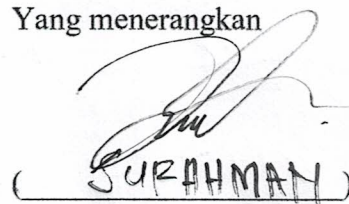 Yang menerangkan
( SURAHMAN )